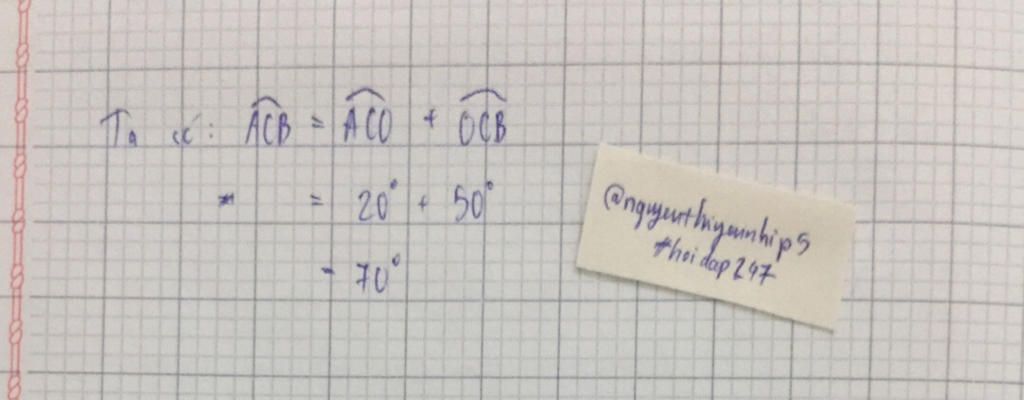 Ta có: ACB = ACO + OCB
= 20° + 50°
= 70°
@nguyenthiyennhip5
#hoidap247